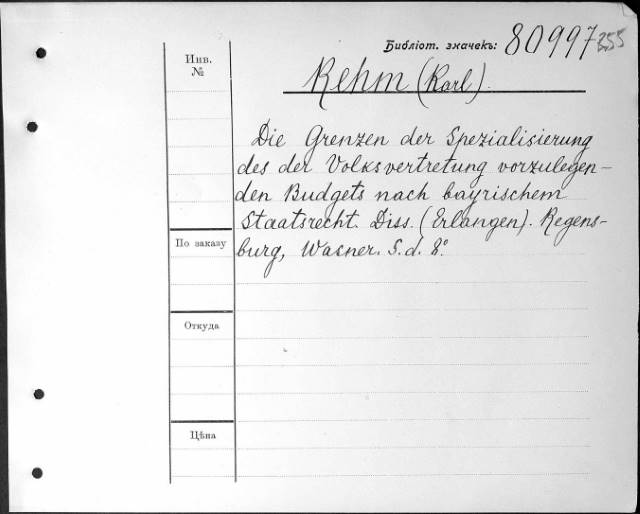 Библіот. значекъ: 80997 855
Инв.
№
Rehm (Karl).
Die Grenzen der Spezialisierung
des der Volksvertretung vorzulegen-
den Budgets nach bayrischem
Staatsrecht. Diss. (Erlangen). Regens-
burg, Wasner. S. d. 8°.
По заказу
Откуда
Цѣна